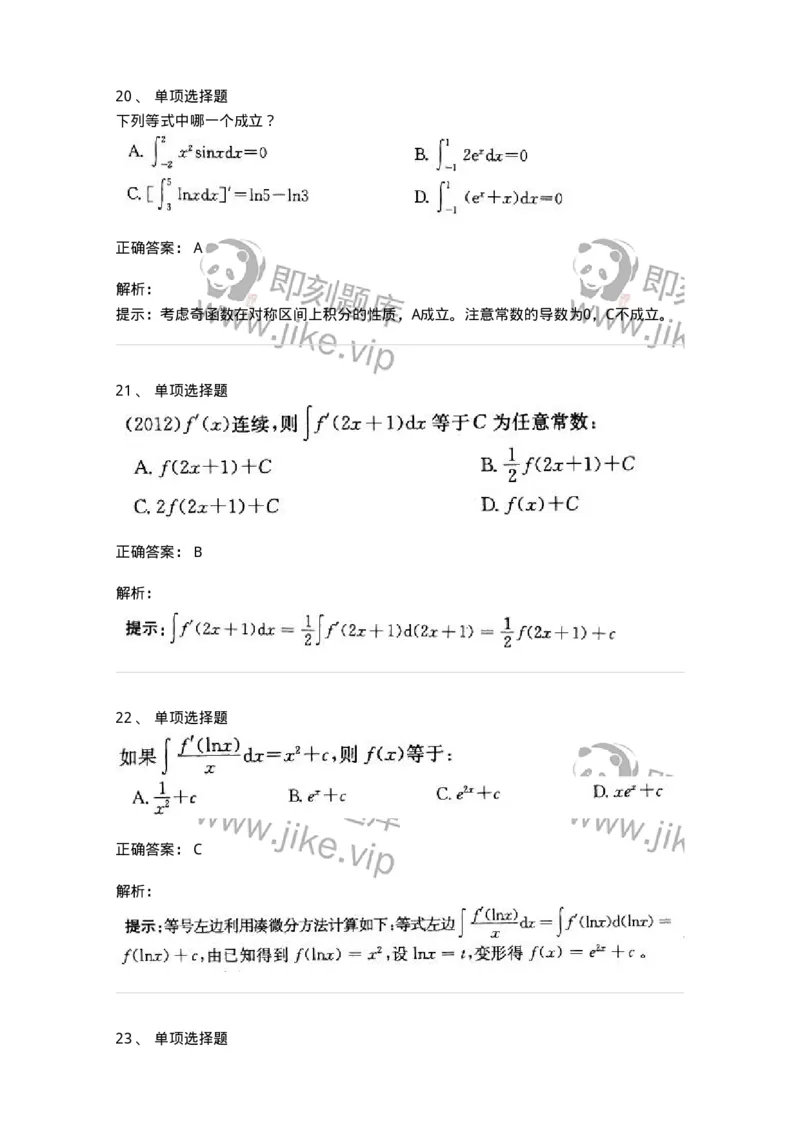 20 、 单项选择题
下列等式中哪一个成立？
A. ∫₋₂² x²sinxdx=0 B. ∫₋₁¹ 2eˣdx=0
C. [∫₃⁵ lnxdx]′=ln5−ln3 D. ∫₋₁¹ (eˣ+x)dx=0
正确答案： A
即刻题库
www.jike.vip
即刻
www.jik
解析：
提示：考虑奇函数在对称区间上积分的性质，A成立。注意常数的导数为0，C不成立。
21 、 单项选择题
(2012)f′(x)连续,则∫f′(2x+1)dx 等于C 为任意常数:
A. f(2x+1)+C B. ½f(2x+1)+C
C. 2f(2x+1)+C D. f(x)+C
正确答案： B
解析：
提示:∫f′(2x+1)dx = ½∫f′(2x+1)d(2x+1) = ½f(2x+1)+c
22 、 单项选择题
如果∫f′(lnx)/x dx=x²+c,则 f(x)等于:
A. 1/x²+c B. eˣ+c C. e²ˣ+c D. xeˣ+c
正确答案： C
www.jike.vip
www.jik
解析：
提示:等号左边利用凑微分方法计算如下:等式左边∫f′(lnx)/x dx = ∫f′(lnx)d(lnx) =
f(lnx)+c,由已知得到 f(lnx) = x²,设 lnx = t,变形得 f(x) = e²ˣ + c 。
23 、 单项选择题